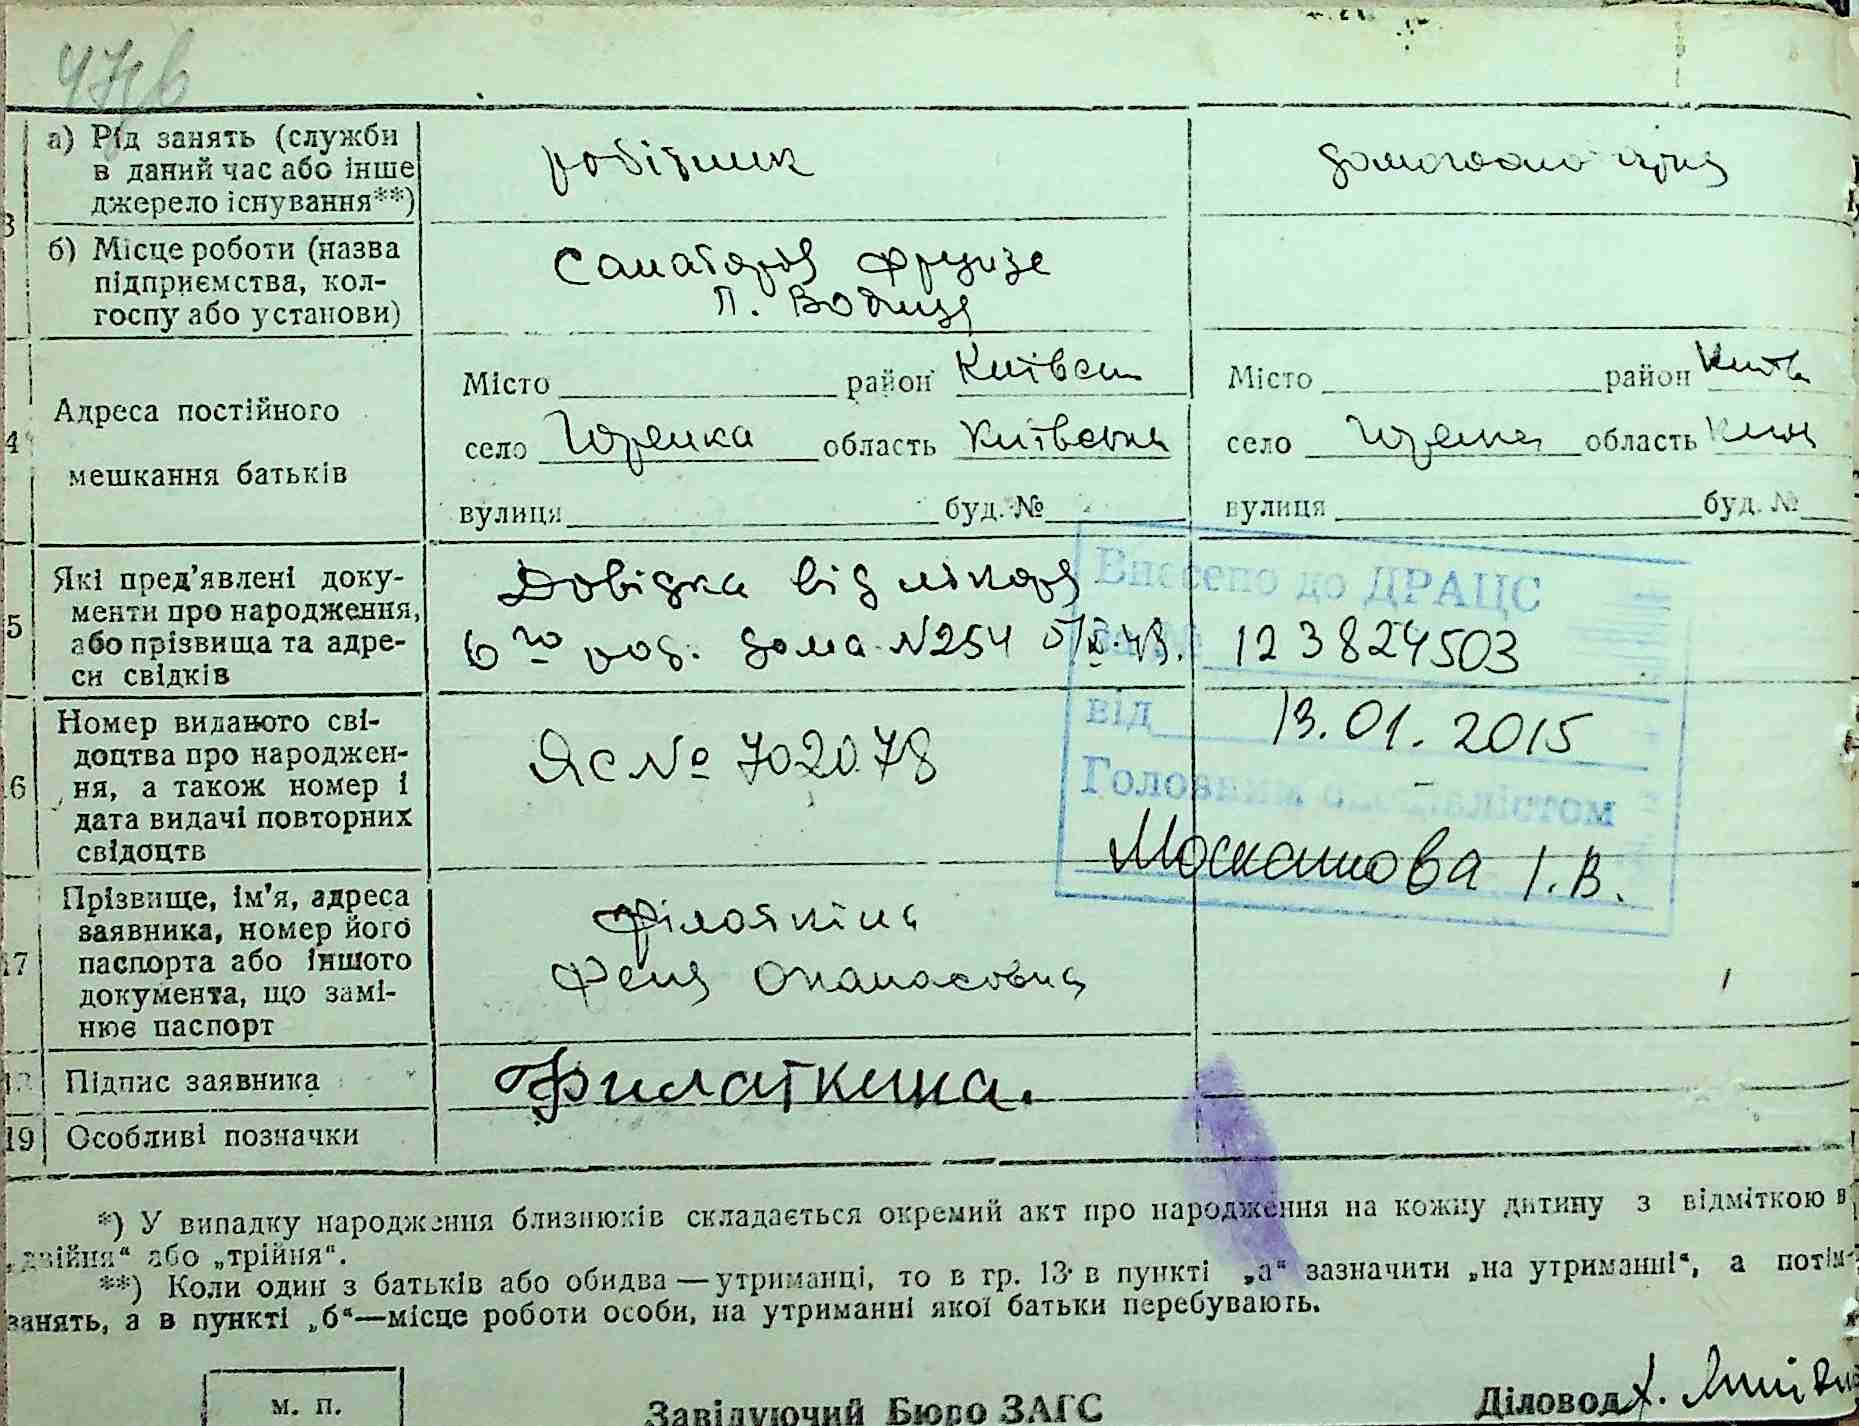 а) Рід занять (служби
в даний час або інше
джерело існування**)
робітник
домогосподарка
б) Місце роботи (назва
підприємства, кол-
госпу або установи)
Санаторія Фрунзе
П. Водиця
4
Адреса постійного
мешкання батьків
Місто район Київськ
село Горенка область Київська
вулиця буд. №
Місто район Київ
село Горенка область
вулиця буд. №
5
Які пред'явлені доку-
менти про народження,
або прізвища та адре-
си свідків
Довідка від лікаря
6го род. дома №254
Внесено до ДРАЦС
123824503
від 13.01.2015
Головним спеціалістом
Москашова І.В.
6
Номер виданого сві-
доцтва про народжен-
ня, а також номер і
дата видачі повторних
свідоцтв
ЯС № 702078
17
Прізвище, ім'я, адреса
заявника, номер його
паспорта або іншого
документа, що замі-
нює паспорт
Філаткіна
Феня Опанасовна
Підпис заявника
Филаткина.
19
Особливі позначки
*) У випадку народження близнюків складається окремий акт про народження на кожну дитину з відміткою в
„двійня“ або „трійня“.
**) Коли один з батьків або обидва — утриманці, то в гр. 13 в пункті „а“ зазначити „на утриманні“, а потім
занять, а в пункті „б“—місце роботи особи, на утриманні якої батьки перебувають.
м. п.
Завідуючий Бюро ЗАГС
Діловод